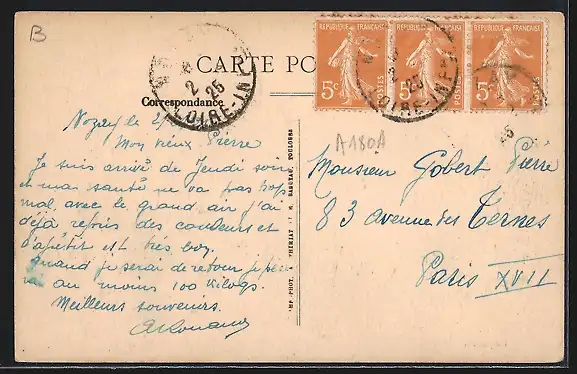 B
CARTE PO
Correspondance
REPUBLIQUE FRANÇAISE
5c POSTES
REPUBLIQUE FRANÇAISE
5c POSTES
REPUBLIQUE FRANÇAISE
5c POSTES
2
25
LOIRE-INF
2
25
LOIRE-INF
A180A
Nozay le 2/
Mon vieux Pierre
Je suis arrivé de Jeudi soir
et ma santé ne va pas trop
mal avec le grand air j'ai
déjà repris des couleurs et
l'apétit est très bon.
Quand je serai de retour je
au moins 100 kilogs.
Meilleurs souvenirs.
Monsieur Gobert Pierre
83 avenue des Ternes
Paris XVII
TOULOUSE